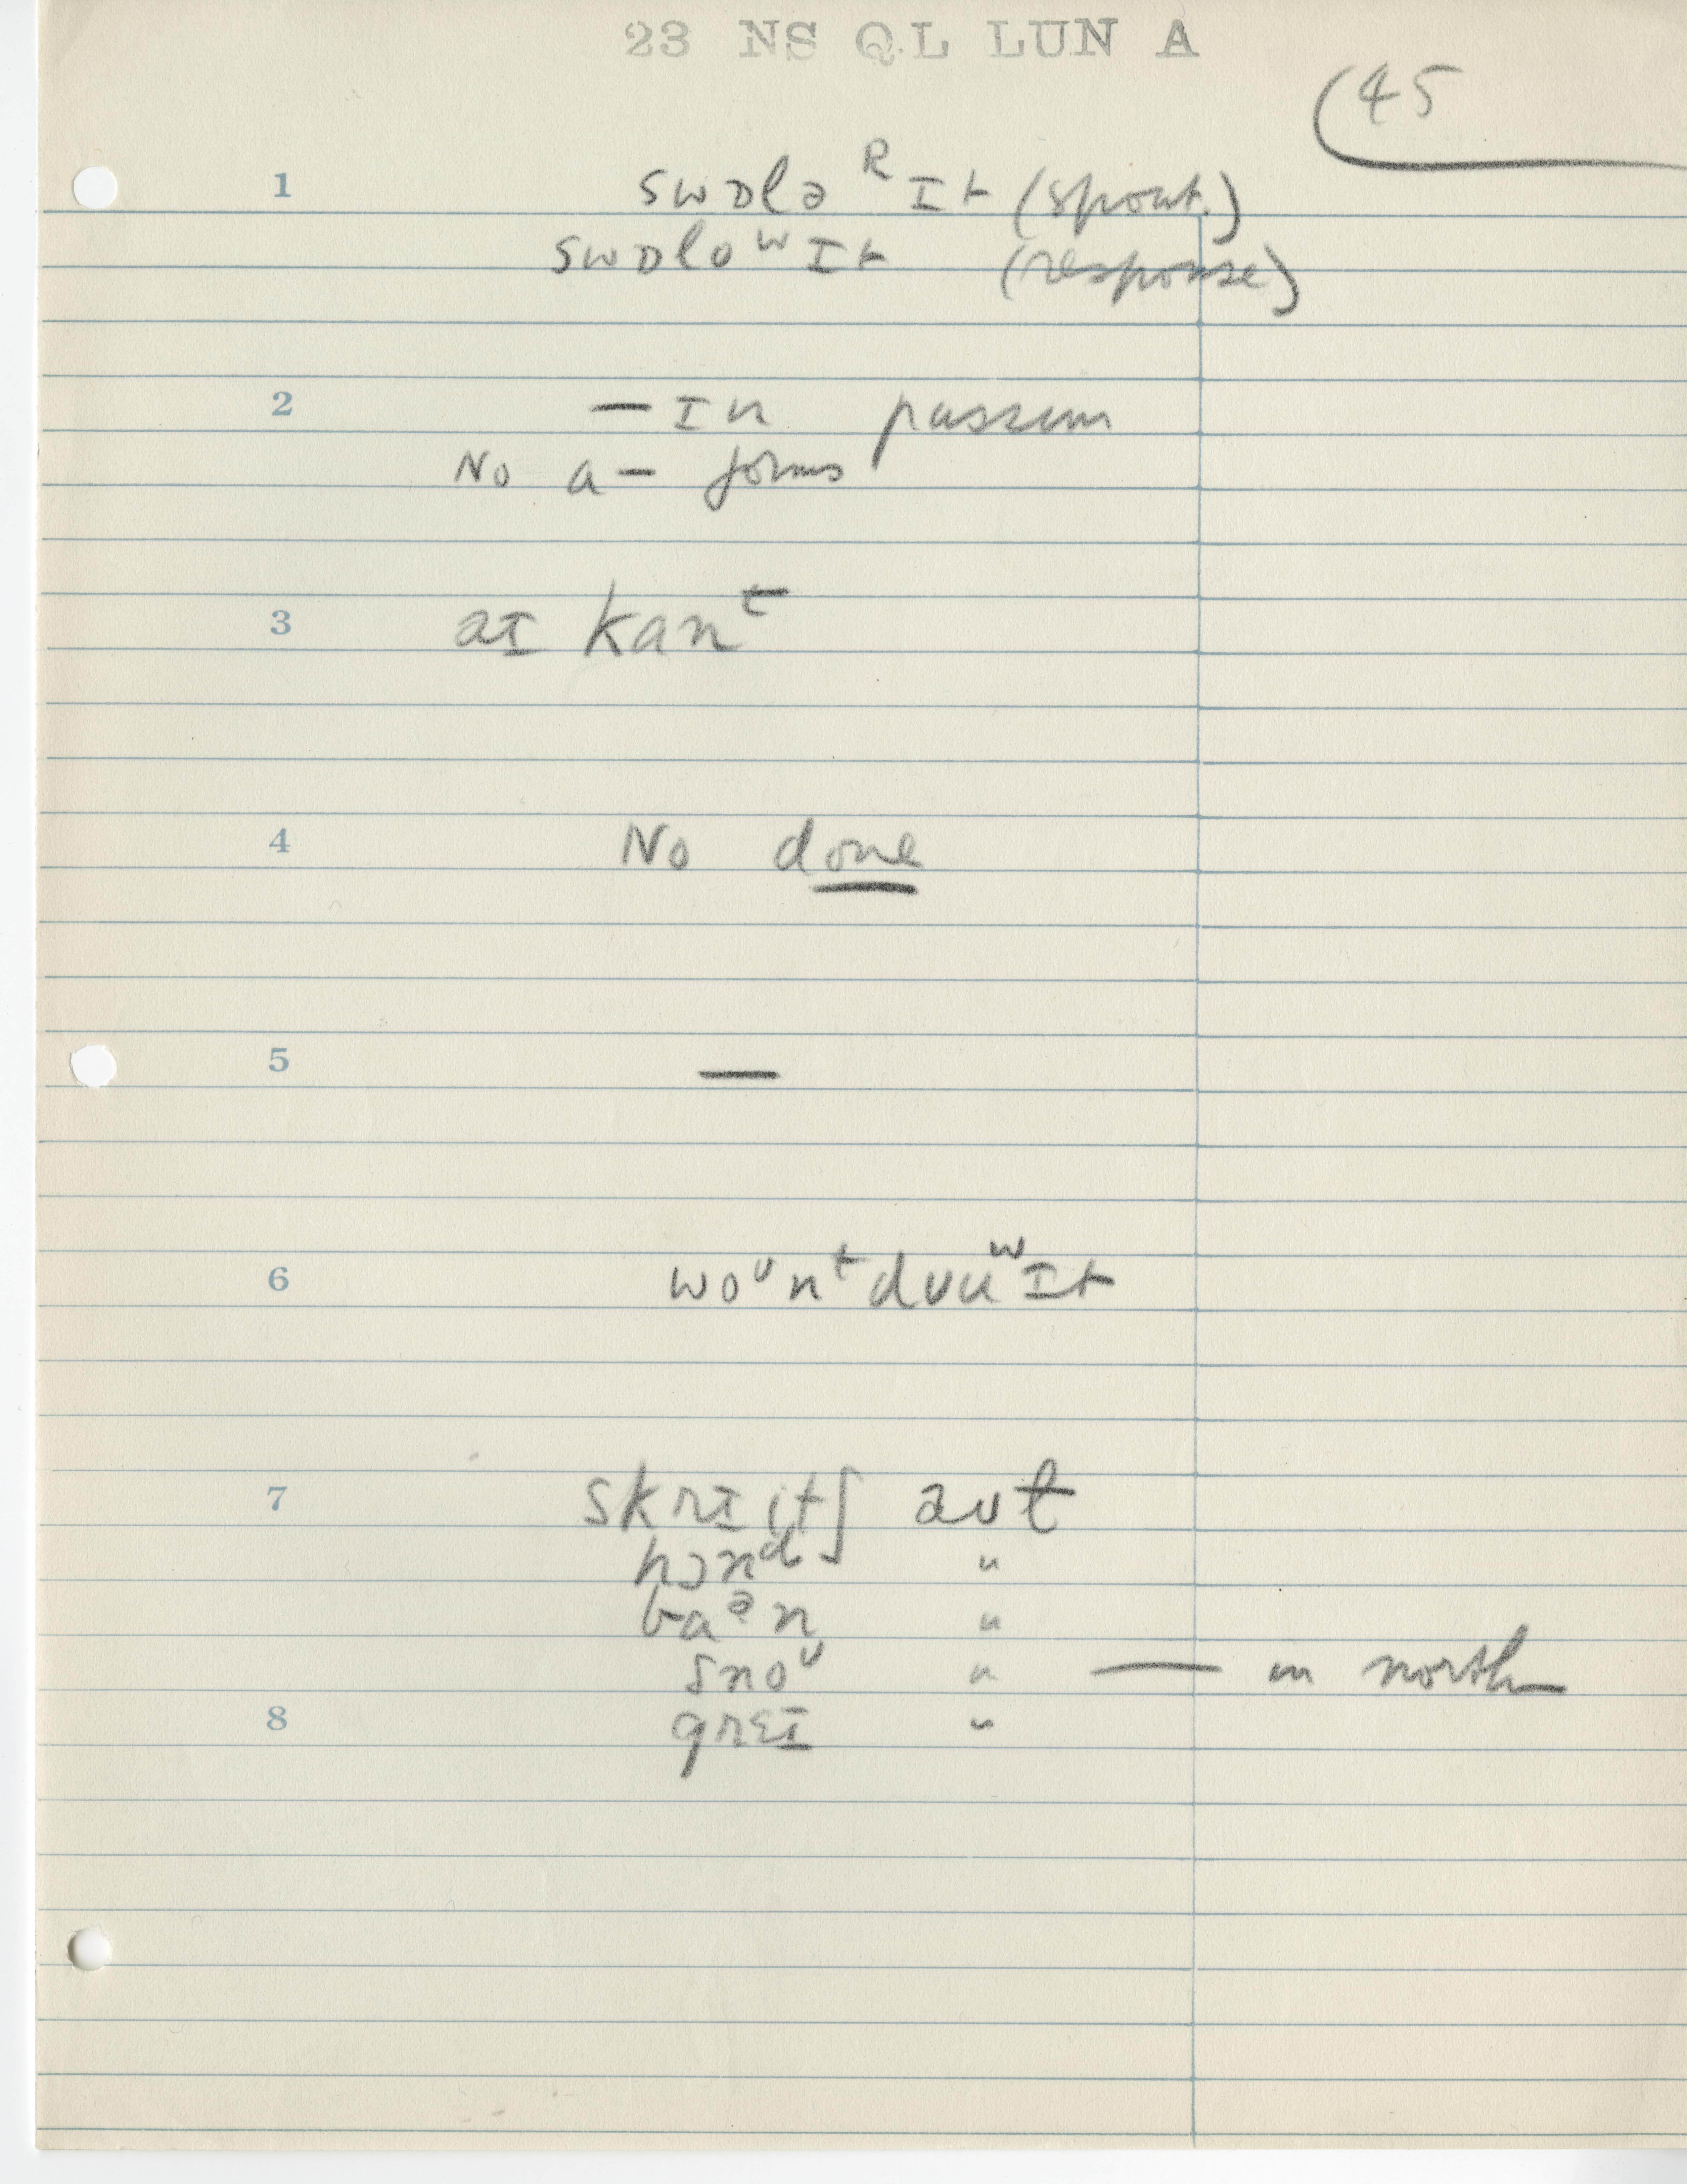 23 NS QL LUN A
(45
1 swɒlə ᴿ ɪt (spont.)
swɒloʷɪt (response)
2 —ɪn passim
No a— forms
3 aɪ kanᵗ
4 No done
5 —
6 woᶷnᵗ dʊuʷɪt
7 skrɪitʃ aʊt
hɔnᵈ "
baᵊn "
snoᶷ " — in north
8 grɛɪ "